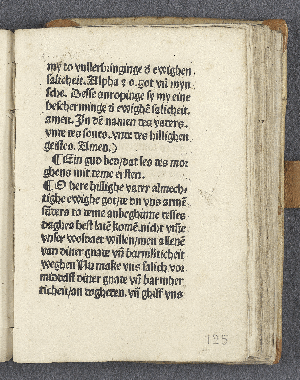 my to vullerbringinge d ewighen
salicheit. Alpha & o. got vñ myn
sche. Desse anropinge sy my eine
bescherminge d ewighē salicheit.
amen. In dē namen des vaters.
vnde des sones. vnde des hillighen
geistes. Amen.)
¶ Ein gud bed/dat les des mor
ghens mit deme ersten.
¶ O here hillighe vater almech-
tighe ewighe got/de du vns arme
sūders to deme anbeghinne desses
daghes hest latē komē. nicht vmme
vnser woldaet willen/men allene
van diner gnade vñ barmherticheit
weghen Nu make vns salich vor
middelst diner gnade vñ barmher
ticheit/an dogheden. vñ ghiff vns
125